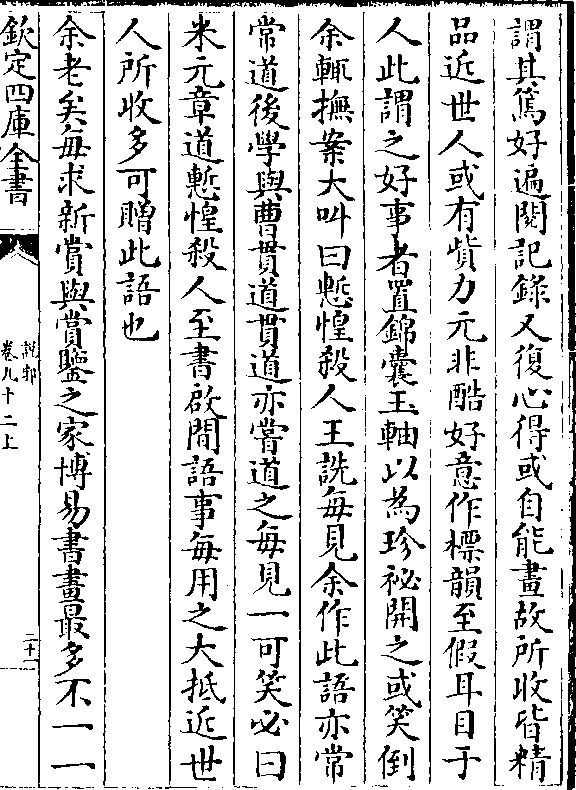 謂其篤好遍閱記錄又復心得或自能畫故所收皆精
品近世人或有貲力元非酷好意作標韻至假耳目于
人此謂之好事者置錦囊玉軸以為珍祕開之或笑倒
余輒撫案大叫曰慙惶殺人王詵每見余作此語亦常
常道後學與曹貫道貫道亦嘗道之每見一可笑必曰
米元章道慙惶殺人至書啟間語事每用之大抵近世
人所收多可贈此語也
余老矣每求新賞與賞鑒之家博易書畫最多不一一
欽定四庫全書
說郛
卷九十二上
二十一